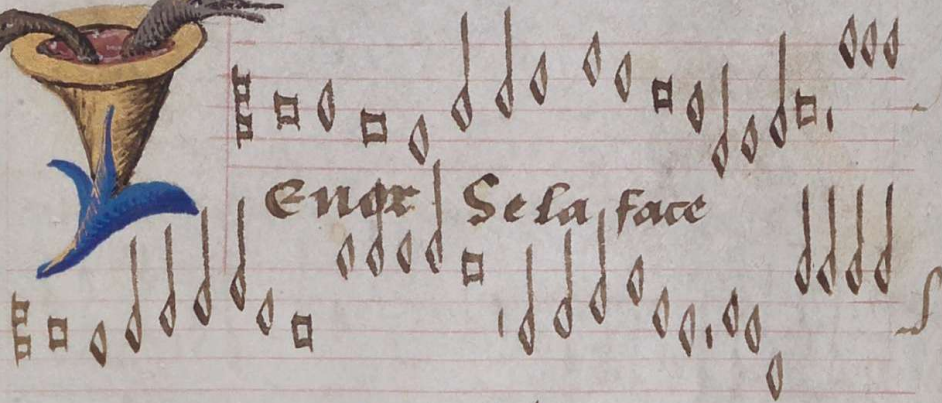 Enor Se la face